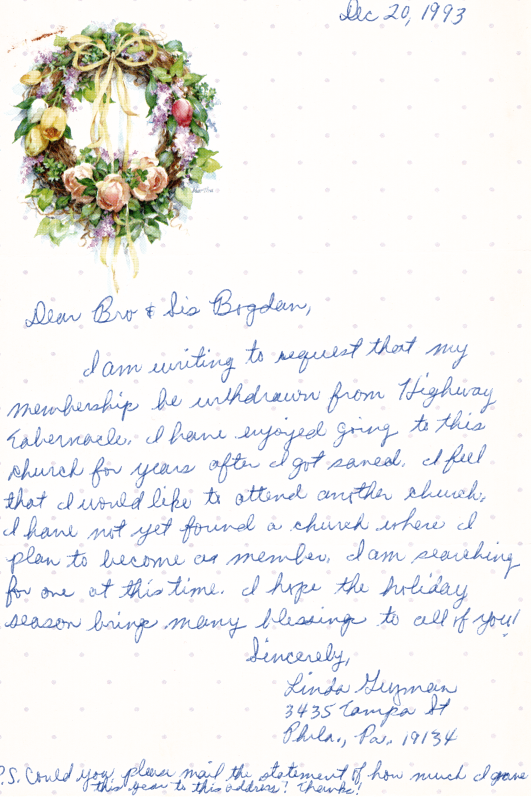 Dec 20, 1993
Dear Bro & Sis Bogdan,
I am writing to request that my
membership be withdrawn from Highway
Tabernacle. I have enjoyed going to this
church for years after I got saved. I feel
that I would like to attend another church.
I have not yet found a church where I
plan to become as member. I am searching
for one at this time. I hope the holiday
season brings many blessings to all of you!
Sincerely,
Linda Guzman
3435 Tampa St
Phila., Pa. 19134
P.S. Could you please mail the statement of how much I gave
this year to this address? Thanks!